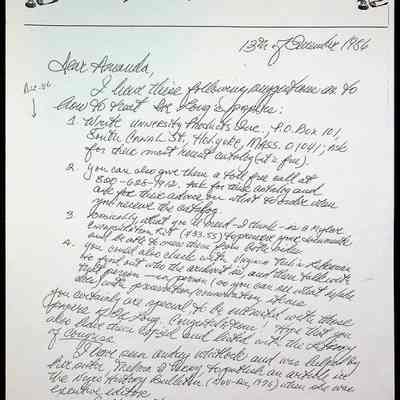 13th of December 1986
Dear Amanda,
I have these following suggestions as to
how to treat Dr. Long's papers:
1. Write University Products Inc., P.O. Box 101,
South Canal St., Holyoke, MASS. 01041; ask
for their most recent catalog (it's free).
2. You can also give them a toll free call at
800-628-1912. Ask for their catalog and
ask for their advice on what to order when
you receive the catalog.
3. Basically what you'll need - I think - is a Mylar
Encapsulation Kit ($33.55) to preserve your documents
and be able to view them from both sides.
4. You could also check with Virginia Tech's
find out who the archivist is, and then talk with
that person in person (so you can see what
does with preservation/conservation items
You certainly are special to be entrusted with those
papers of Dr. Long. Congratulations! Hope that you
also have them copied and listed with the Library
of Congress.
I have seen Audrey and was helped by
her sister, Thelma D. Perry, to publish an article in
the Negro History Bulletin (Nov-Dec, 1976) when she was
executive editor.